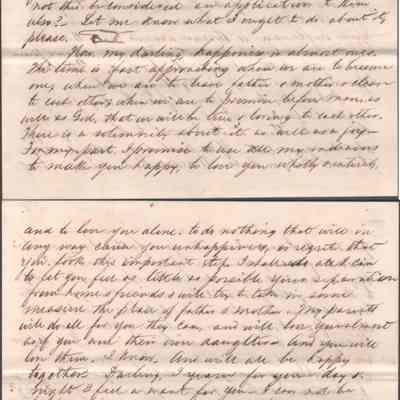 not this be considered an application to him
also? Let me know what I ought to do about it,
please.
Then, my darling happiness is almost ours.
The time is fast approaching when we are to become
one, when we are to leave father & mother & cleave
to each other, when we are to promise before man as
well as God, that we will be true & loving to each other.
There is a solemnity about it as well as a joy
For my part, I promise to use all my endeavors
to make you happy, to love you wholly & entirely,
and to love you alone. to do nothing that will in
any way cause you unhappiness, or regret that
you took this important step. I shall do all I can
to let you feel as little as possible your separation
from home & friends & will try to take in some
measure the place of father & mother. My parents
will do all for you they can, and will love you almost
as if you were their own daughter. And you will
love them, I know. And will all be happy
together. Darling, I yearn for you day &
night I feel a want for you I can not be